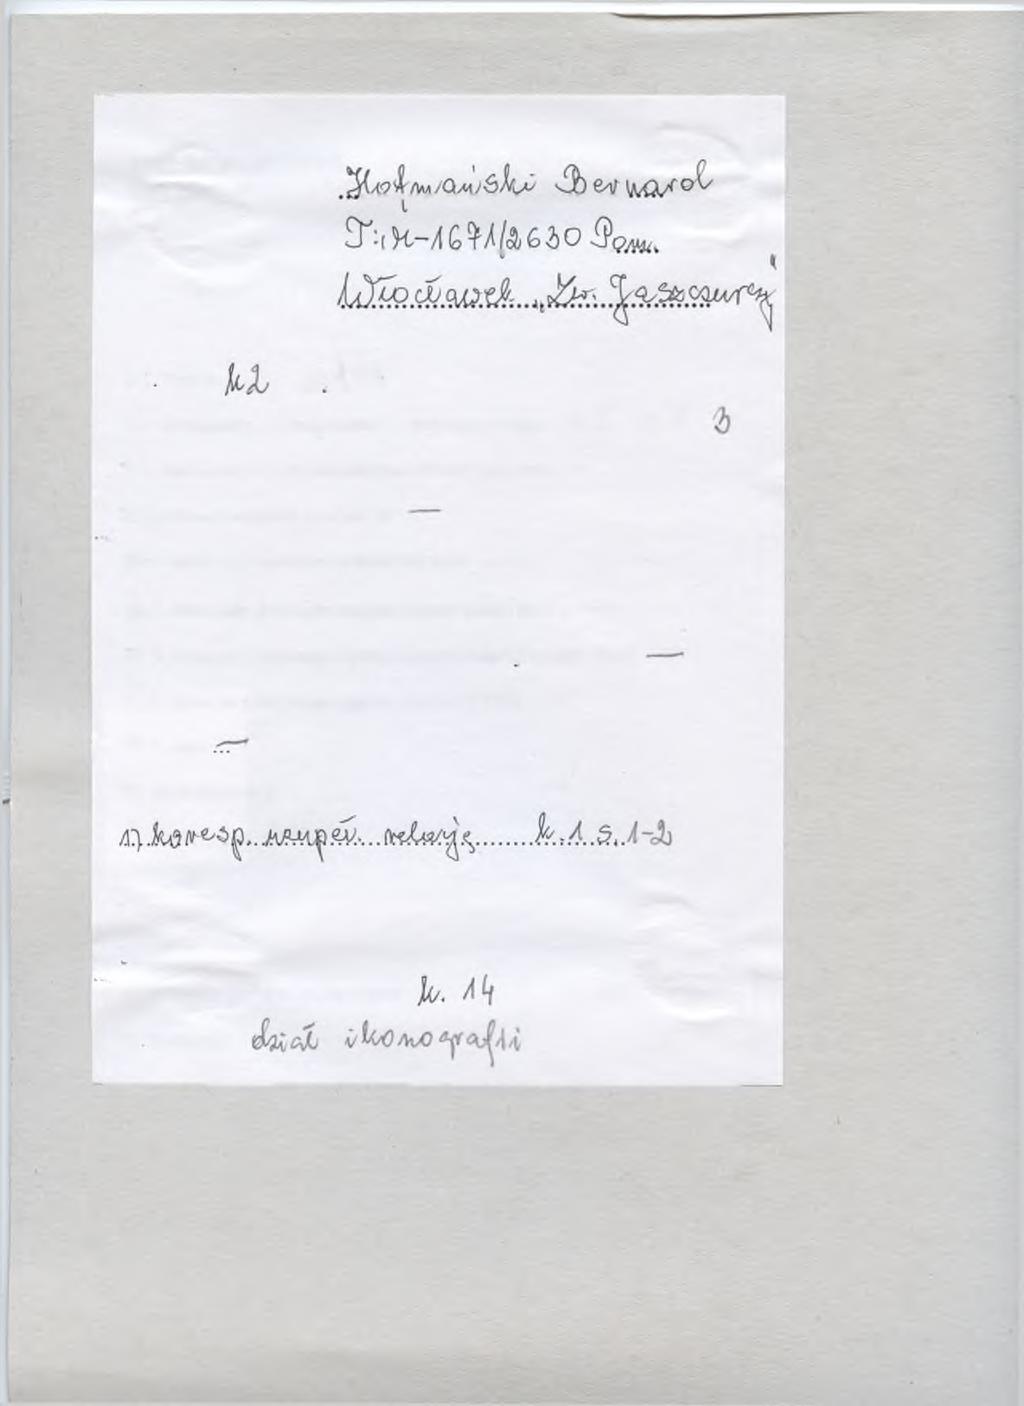 Hofmański Bernard
T: M-1671/2630 Pom.
Włocławek „Zw. Jaszczurczy"
k2
3
—
—
—
1.) koresp. uzupeł. relację k. 1 s. 1-2
k. 14
dział ikonografii